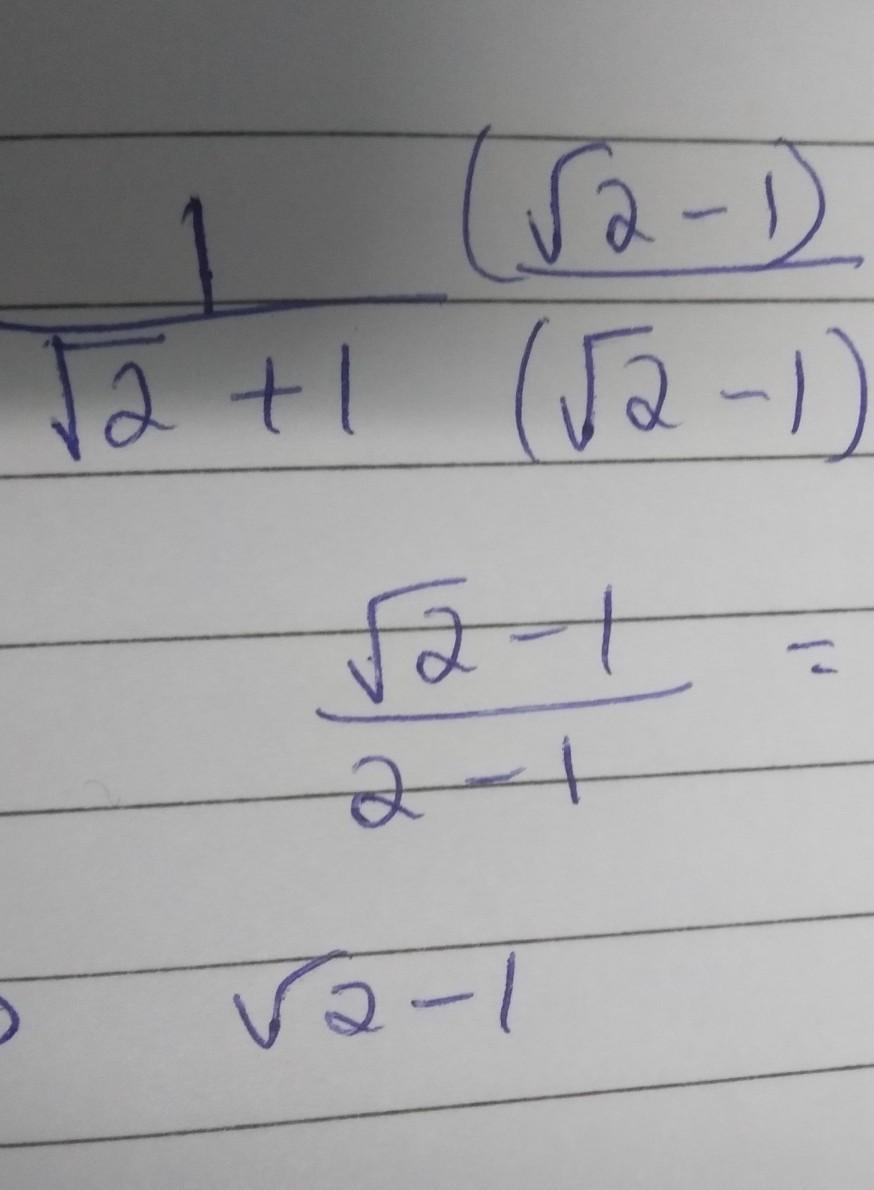 1 (√2 - 1)
√2 + 1 (√2 - 1)
√2 - 1 =
2 - 1
√2 - 1